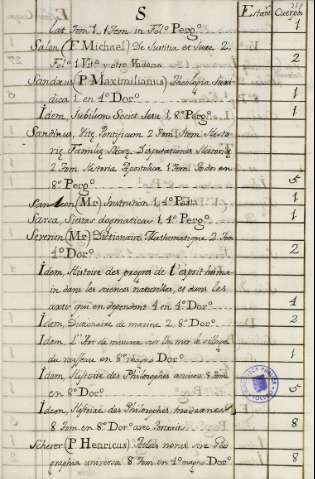 S
Estañ.e Cuerpos
lat. Tom. 1. 1 Tom. in Fol.º Perg.º 1
Salon (F. Michael) De Justitia et Jure 2.
Fol.º 1. Vit.ª y otro Badana 2
Sandæus (P. Maximilianus) Theologia
dica 1. en 4.º Dor.º 1
Idem, Jubilum Societ. Jesu 1. 8.º Perg.º 1
Sandinus, Vitæ Pontificum 2 Tom. Item Histo
riæ Familiæ Sacræ Disputationes Historicæ
2 Tom. Historia Apostolica 1 Tom. Todo en
8.º Perg.º 5
(Mr.) Institution 1. 4.º Pasta 1
Sarsa 1. 4.º Perg.º 1
Saverien (Mr.) Dictionaire Mathematique 2 Tom.
4.º Dor.º 2
Idem, Histoire des progres de l'esprit huma
in dans les sciences naturelles, et dans les
arts qui en dependent 1 en 4.º Dor.º 1
Idem, Dictionaire de marine 2. 8.º Dor.º 2
Idem, L'Art de mesurer sur mer le sillage
du vaisseau en 8.º Dor.º 1
Idem, Histoire des Philosophes anciens 5 Tom.
en 8.º Dor.º 5
Idem, Histoire des Philosophes modernes
8 Tom. en 8.º Dor.º avec Portraits 8
Scherer (P. Henricus) Atlas novus sive Geo
graphia universa 8 Tom. en 4.º Dor.º 8